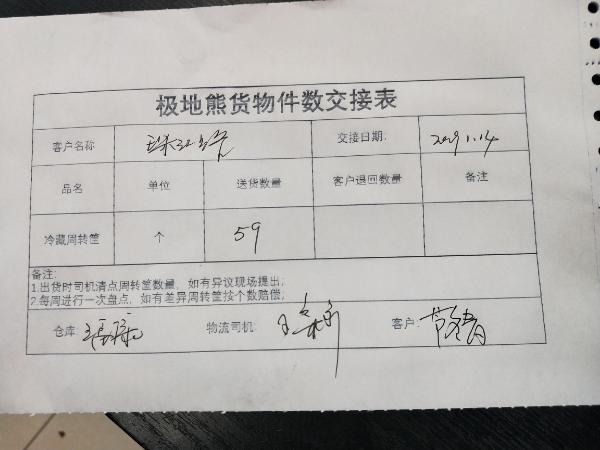 极地熊货物件数交接表
客户名称 交接日期: 2019.1.14
品名 单位 送货数量 客户退回数量 备注
冷藏周转筐 个 59
备注:
1.出货时司机清点周转筐数量,如有异议现场提出;
2.每周进行一次盘点,如有差异周转筐按个数赔偿;
仓库: 物流司机: 客户: